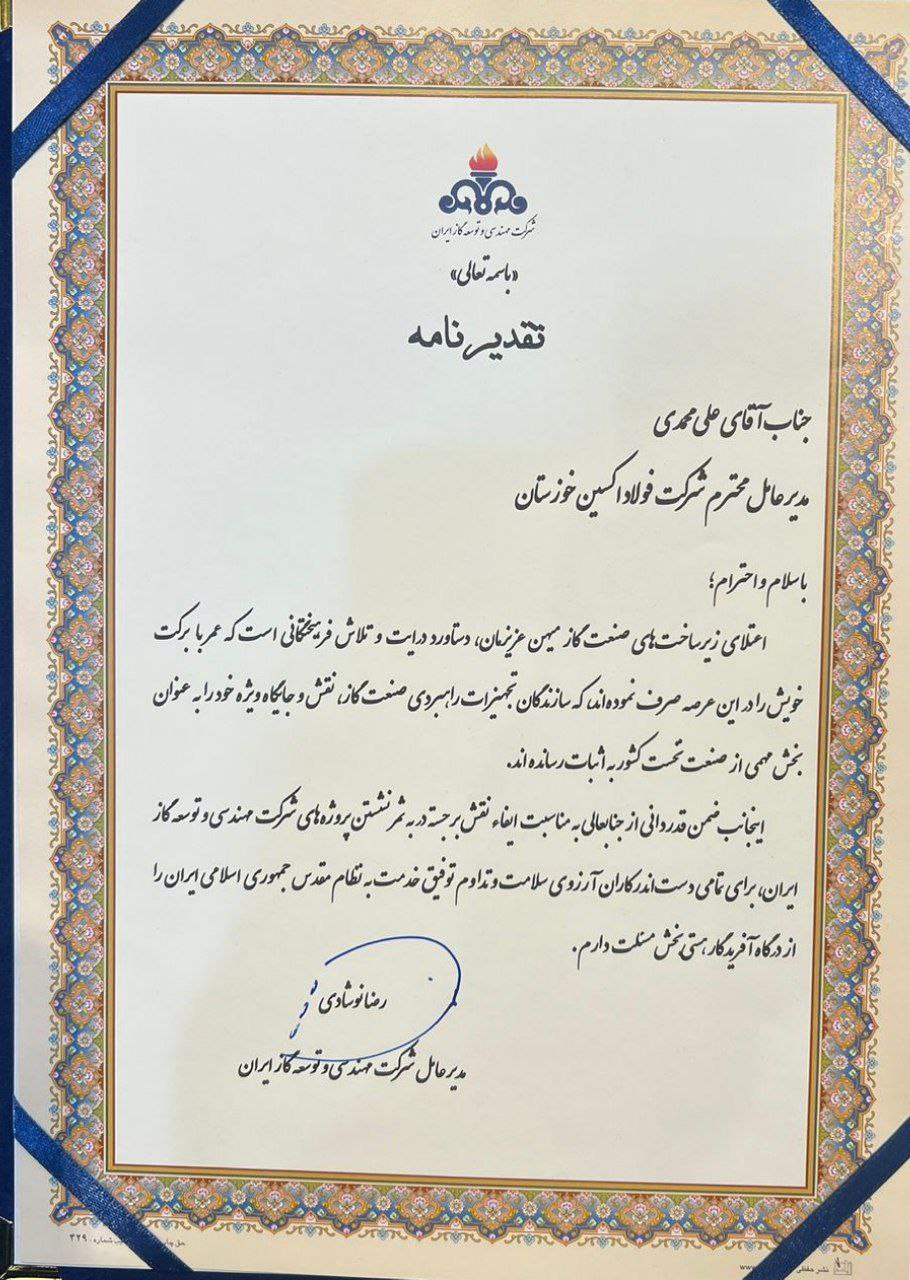 شرکت مهندسی و توسعه گاز ایران
«باسمه تعالی»
تقدیرنامه
جناب آقای علی محمدی
مدیرعامل محترم شرکت فولاد اکسین خوزستان
باسلام و احترام؛
اعتلای زیرساخت‌های صنعت گاز میهن عزیزمان، دستاورد درایت و تلاش فرهیختگانی است که عمر با برکت
خویش را در این عرصه صرف نموده‌اند، که سازندگان تجهیزات راهبردی صنعت گاز، نقش و جایگاه ویژه خود را به عنوان
بخش مهمی از صنعت نخست کشور به اثبات رسانده اند.
اینجانب ضمن قدردانی از جنابعالی به مناسبت ایفاء نقش برجسته در به ثمر نشستن پروژه‌های شرکت مهندسی و توسعه گاز
ایران، برای تمامی دست اندرکاران آرزوی سلامت و تداوم توفیق خدمت به نظام مقدس جمهوری اسلامی ایران را
از درگاه آفریدگار هستی بخش مسئلت دارم.
رضا نوشادی
مدیرعامل شرکت مهندسی و توسعه گاز ایران
شماره: ۴۲۹
نشر حفظی